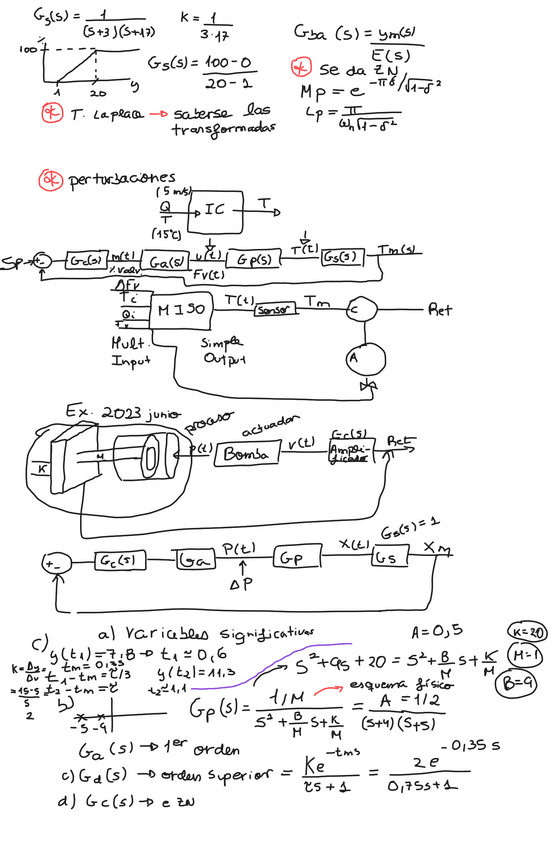 Gs(s) = 1/((s+3)(s+17))
K = 1/(3·17)
100
1
20
y
Gs(s) = (100-0)/(20-1)
Gba(s) = ym(s)/E(s)
* se da ZN
Mp = e^(-πδ/√(1-δ²))
tp = π/(ωn√(1-δ²))
* T. Laplace → saberse las transformadas
* perturbaciones
(5 m/s)
Q
T
(15°C)
IC
T
SP
+
-
Gc(s)
m(t)
% valv
Ga(s)
v(t)
Fv(t)
Gp(s)
T(t)
Gs(s)
Tm(s)
ΔFv
Ti
Qi
MISO
T(t)
sensor
Tm
C
Ref
A
Mult.
Input
Simple
Output
Ex. 2023 junio
proceso
K
M
P(t)
actuador
Bomba
v(t)
Gc(s)
Ampli-
ficador
Ref
+
-
Gc(s)
Ga
P(t)
ΔP
Gp
X(t)
Gs
Gs(s)=1
Xm
a) variables significativas
A=0,5
K=20
M=1
B=9
c)
y(t1)=7,8 → t1≃0,6
K=Δy/Δv
tm=0,35
t1-tm=τ/3
y(t2)=11,3
=15-5
5
2
t2-tm=τ
t2≃1,1
s²+9s+20 = s²+B/M s+K/M
esquema físico
b)
-5 -4
Gp(s) = (1/M)/(s²+B/M s+K/M) = (A=1/2)/((s+4)(s+5))
Ga(s) → 1er orden
c) Gd(s) → orden superior = Ke^(-tms)/(τs+1) = 2e^(-0,35s)/(0,75s+1)
d) Gc(s) → e ZN